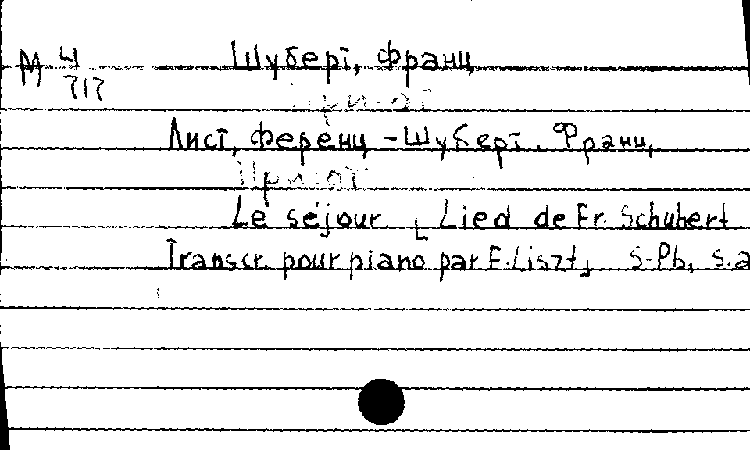 М 4 Шуберт, Франц
717
Приют
Лист, Ференц - Шуберт, Франц,
Приют
Le séjour [ Lied de Fr. Schubert
Transcr. pour piano par F. Liszt], S-Pb, s.a